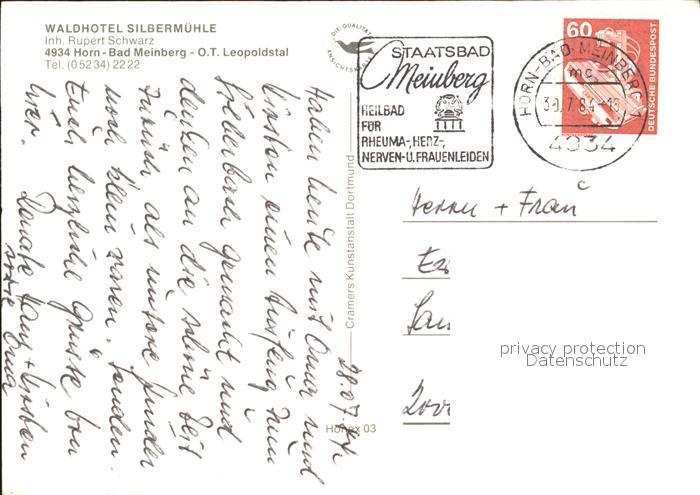 WALDHOTEL SILBERMÜHLE
Inh. Rupert Schwarz
4934 Horn-Bad Meinberg - O.T. Leopoldstal
Tel. (05234) 2222
DIE QUALITÄTS
ANSICHTSKARTE
STAATSBAD
Meinberg
HEILBAD
FÜR
RHEUMA-, HERZ-,
NERVEN-U. FRAUENLEIDEN
HORN-BAD MEINBERG 1
mc
30.7.84-18
4934
60
DEUTSCHE BUNDESPOST
28.07.84
Haben heute mit Oma und
Kirsten einen Ausflug zum
Silberbach gemacht und
denken an die schöne Zeit
zurück als unsere Kinder
noch klein waren. Senden
Euch herzliche Grüße von
hier.
Renate, Hans + Kirsten
sowie Oma
Cramers Kunstanstalt Dortmund
03
Herrn + Frau
200
privacy protection
Datenschutz